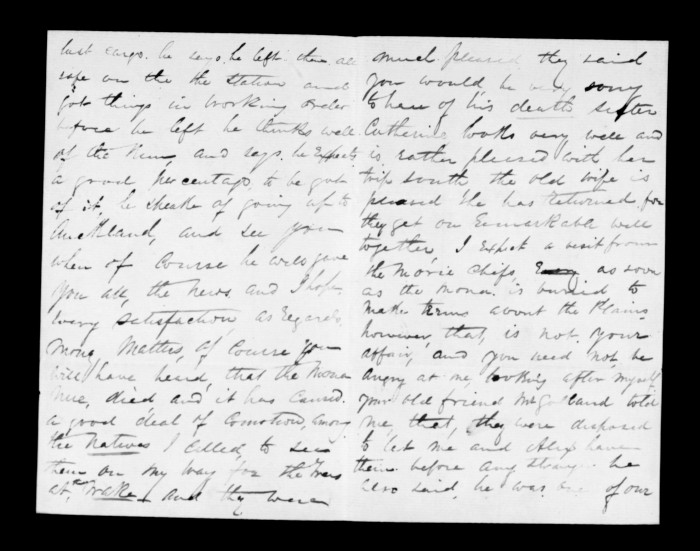 last cargo. he says. he left them all
safe on the the Station and
got things in working order
before he left he thinks well
of the Run, and says. he Expects
a good percentage, to be got
of it he speaks of going up to
Auckland, and see you
when of Course he will give
you all, the News. and I hope
Every satisfaction, as Regards.
Mony Matters, of Course you
Will have heard, that the
died and it has Caused.
a good deal of Comotion, among
the Natives I Called, to see
them on my Way for the
at, the Wake, and they were
much pleased they said
you would, be very sorry
to hear of his death sister
Catherine looks very well and
is, Rather pleased with her
trip south the old wife is
pleased He has Returned, for
they get on Remarkable well
together, I Expect a visit from
the Morie Chifs, as soon
as the is buried to
make terms about the Plains
however, that, is not. your
affair, and you need not, be
angry at me, looking after myself
your old friend told
me, that, they were disposed
to let me and Alex have
them before any he
also said, he was one of our